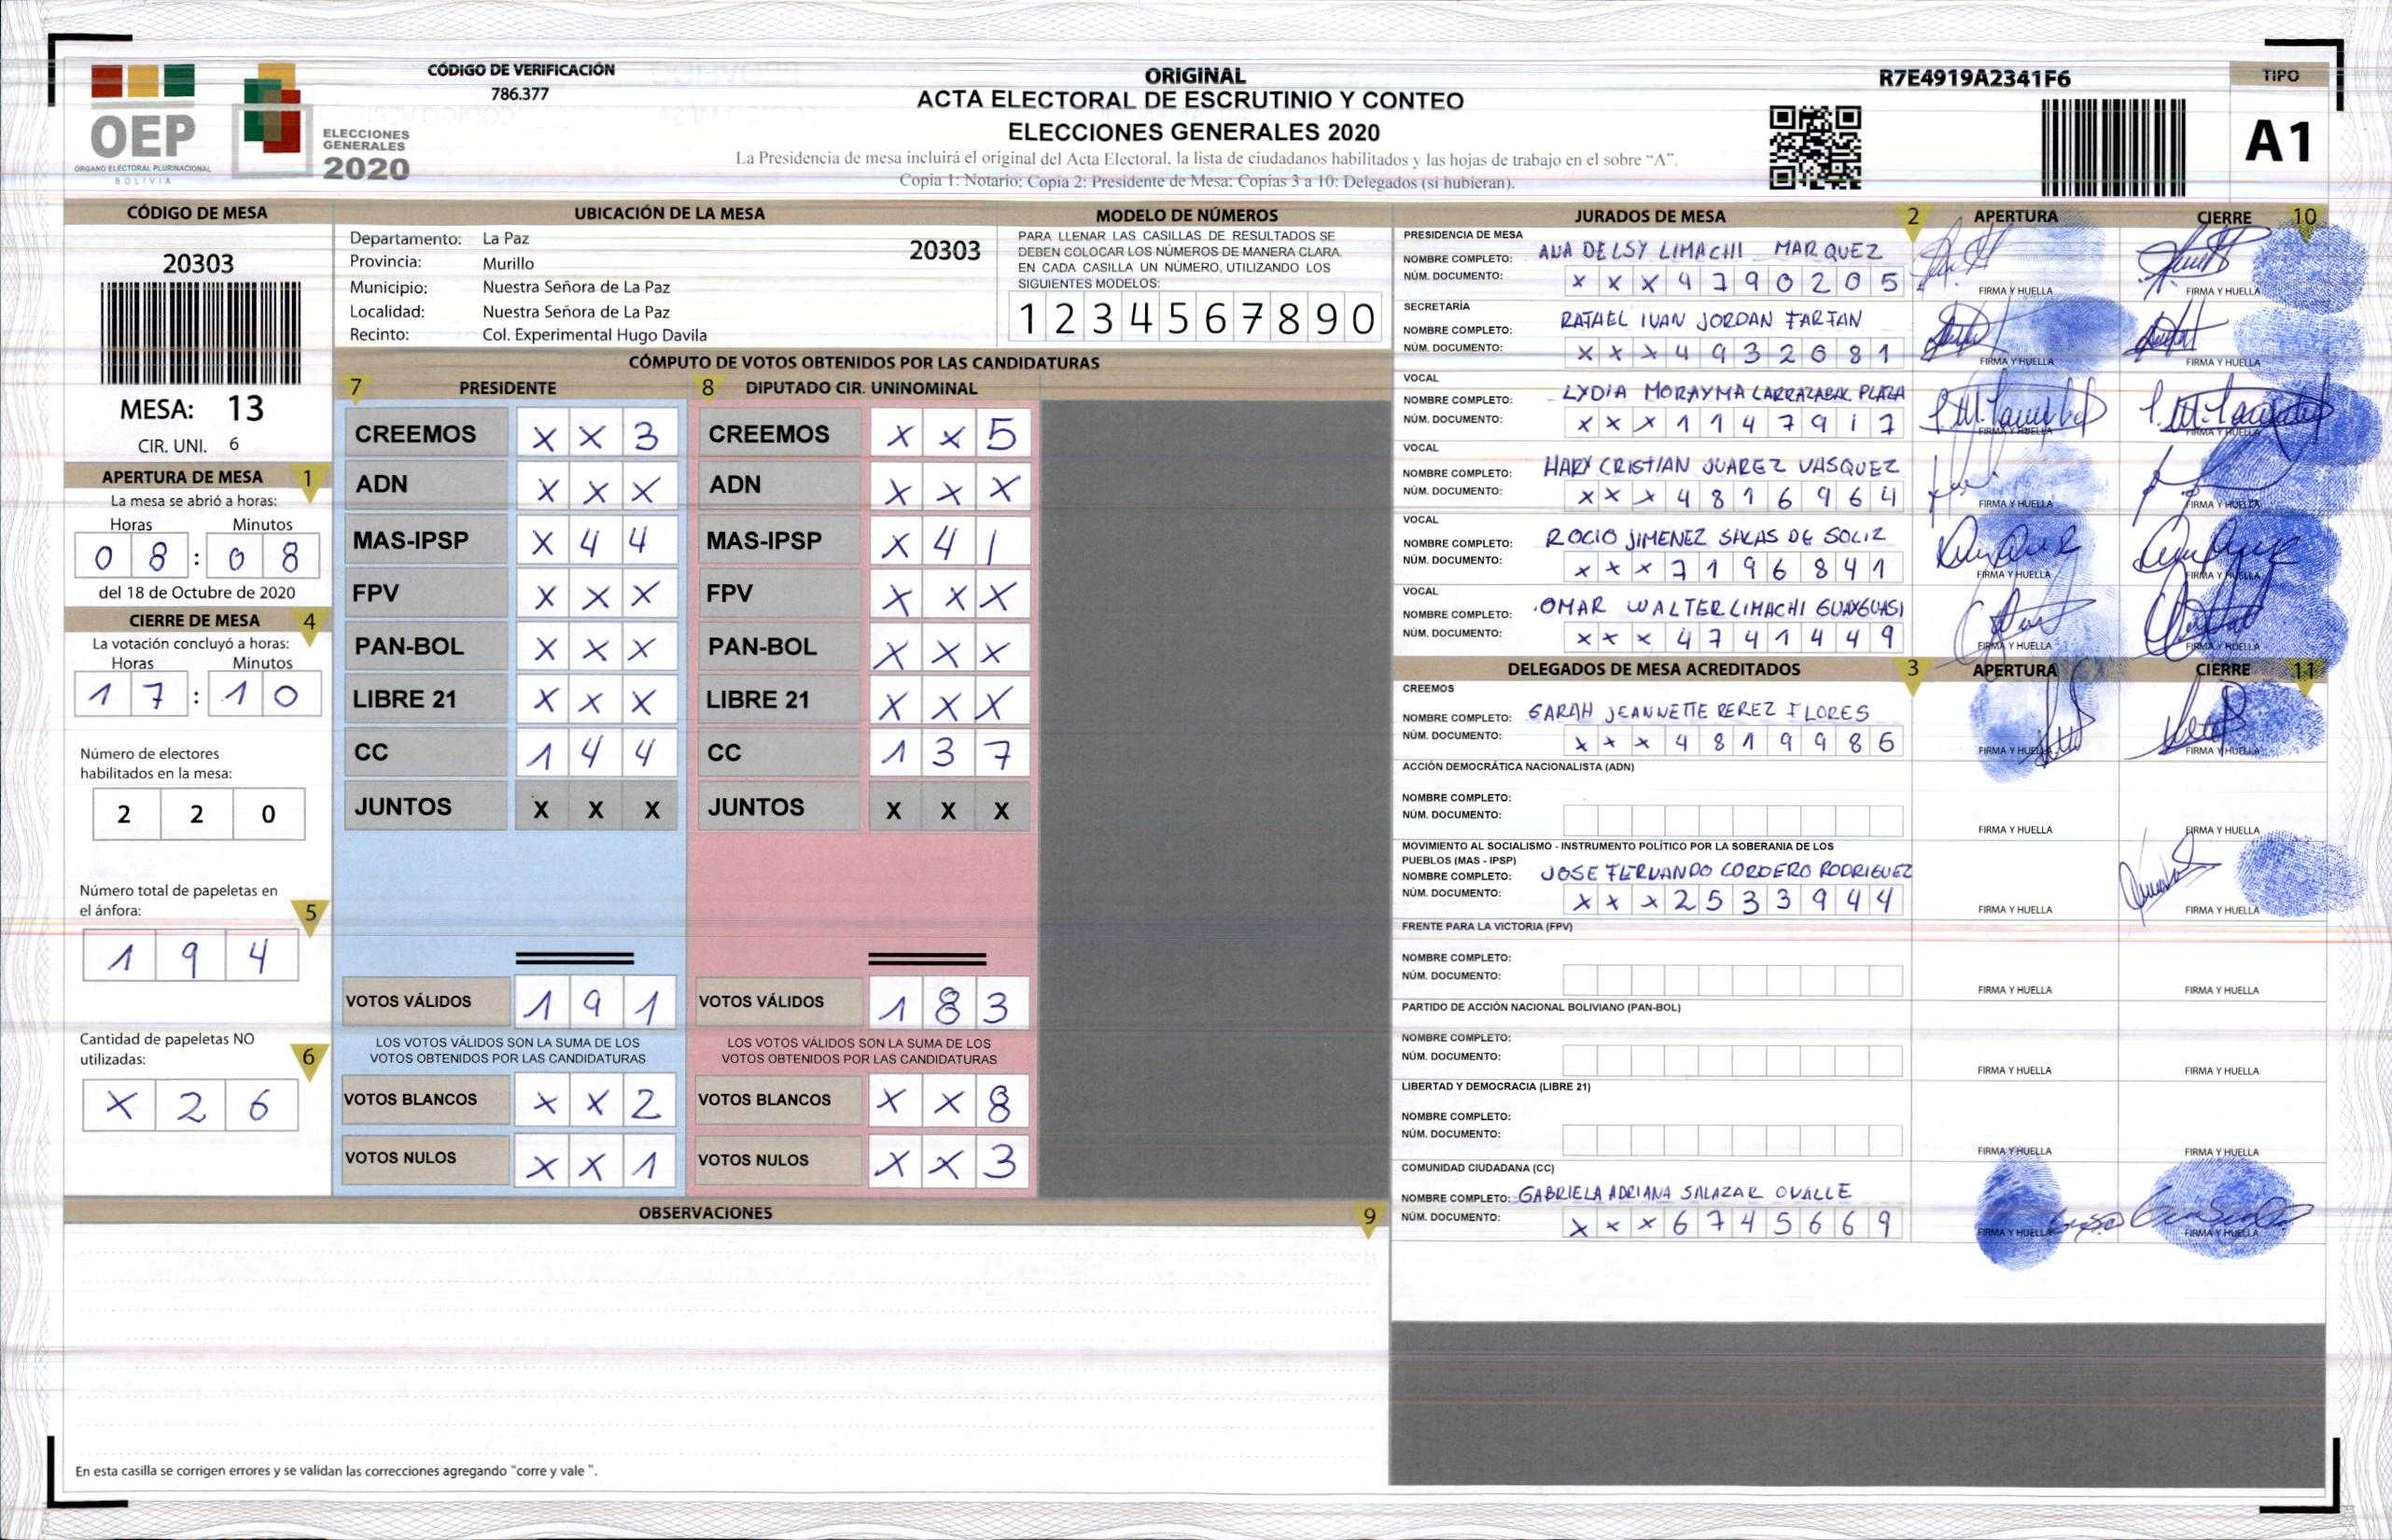 OEP
ÓRGANO ELECTORAL PLURINACIONAL
BOLIVIA
ELECCIONES
GENERALES
2020
CÓDIGO DE VERIFICACIÓN
786.377
ORIGINAL
ACTA ELECTORAL DE ESCRUTINIO Y CONTEO
ELECCIONES GENERALES 2020
La Presidencia de mesa incluirá el original del Acta Electoral, la lista de ciudadanos habilitados y las hojas de trabajo en el sobre “A”.
Copia 1: Notario; Copia 2: Presidente de Mesa; Copias 3 a 10: Delegados (si hubieran).
R7E4919A2341F6
TIPO
A1
CÓDIGO DE MESA
20303
MESA: 13
CIR. UNI. 6
APERTURA DE MESA 1
La mesa se abrió a horas:
Horas Minutos
0 8 : 0 8
del 18 de Octubre de 2020
CIERRE DE MESA 4
La votación concluyó a horas:
Horas Minutos
1 7 : 1 0
Número de electores
habilitados en la mesa:
2 2 0
Número total de papeletas en
el ánfora: 5
1 9 4
Cantidad de papeletas NO
utilizadas: 6
X 2 6
UBICACIÓN DE LA MESA
Departamento: La Paz
20303
Provincia: Murillo
Municipio: Nuestra Señora de La Paz
Localidad: Nuestra Señora de La Paz
Recinto: Col. Experimental Hugo Davila
MODELO DE NÚMEROS
PARA LLENAR LAS CASILLAS DE RESULTADOS SE
DEBEN COLOCAR LOS NÚMEROS DE MANERA CLARA.
EN CADA CASILLA UN NÚMERO, UTILIZANDO LOS
SIGUIENTES MODELOS:
1 2 3 4 5 6 7 8 9 0
CÓMPUTO DE VOTOS OBTENIDOS POR LAS CANDIDATURAS
7 PRESIDENTE 8 DIPUTADO CIR. UNINOMINAL
CREEMOS X X 3 CREEMOS X X 5
ADN X X X ADN X X X
MAS-IPSP X 4 4 MAS-IPSP X 4 1
FPV X X X FPV X X X
PAN-BOL X X X PAN-BOL X X X
LIBRE 21 X X X LIBRE 21 X X X
CC 1 4 4 CC 1 3 7
JUNTOS X X X JUNTOS X X X
VOTOS VÁLIDOS 1 9 1 VOTOS VÁLIDOS 1 8 3
LOS VOTOS VÁLIDOS SON LA SUMA DE LOS
VOTOS OBTENIDOS POR LAS CANDIDATURAS
LOS VOTOS VÁLIDOS SON LA SUMA DE LOS
VOTOS OBTENIDOS POR LAS CANDIDATURAS
VOTOS BLANCOS X X 2 VOTOS BLANCOS X X 8
VOTOS NULOS X X 1 VOTOS NULOS X X 3
OBSERVACIONES 9
En esta casilla se corrigen errores y se validan las correcciones agregando "corre y vale ".
JURADOS DE MESA 2 APERTURA CIERRE 10
PRESIDENCIA DE MESA
NOMBRE COMPLETO: ANA DELSY LIMACHI MARQUEZ
NÚM. DOCUMENTO: X X X 4 7 9 0 2 0 5
FIRMA Y HUELLA FIRMA Y HUELLA
SECRETARÍA
NOMBRE COMPLETO: RAFAEL IVAN JORDAN FARFAN
NÚM. DOCUMENTO: X X X 4 9 3 2 0 8 1
FIRMA Y HUELLA FIRMA Y HUELLA
VOCAL
NOMBRE COMPLETO: LYDIA MORAYMA LARRAZABAL PLAZA
NÚM. DOCUMENTO: X X X 1 1 4 7 9 1 7
FIRMA Y HUELLA FIRMA Y HUELLA
VOCAL
NOMBRE COMPLETO: HARY CRISTIAN JUAREZ VASQUEZ
NÚM. DOCUMENTO: X X X 4 8 1 6 9 6 4
FIRMA Y HUELLA FIRMA Y HUELLA
VOCAL
NOMBRE COMPLETO: ROCIO JIMENEZ SALAS DE SOLIZ
NÚM. DOCUMENTO: X X X 7 1 9 6 8 4 1
FIRMA Y HUELLA FIRMA Y HUELLA
VOCAL
NOMBRE COMPLETO: OMAR WALTER LIMACHI
NÚM. DOCUMENTO: X X X 4 7 4 1 4 4 9
FIRMA Y HUELLA FIRMA Y HUELLA
DELEGADOS DE MESA ACREDITADOS 3 APERTURA CIERRE 11
CREEMOS
NOMBRE COMPLETO: SARAH JEANNETTE PEREZ FLORES
NÚM. DOCUMENTO: X X X 4 8 1 9 9 8 6
FIRMA Y HUELLA FIRMA Y HUELLA
ACCIÓN DEMOCRÁTICA NACIONALISTA (ADN)
NOMBRE COMPLETO:
NÚM. DOCUMENTO:
FIRMA Y HUELLA FIRMA Y HUELLA
MOVIMIENTO AL SOCIALISMO - INSTRUMENTO POLÍTICO POR LA SOBERANIA DE LOS
PUEBLOS (MAS - IPSP)
NOMBRE COMPLETO: JOSE FERNANDO CORDERO RODRIGUEZ
NÚM. DOCUMENTO: X X X 2 5 3 3 9 4 4
FIRMA Y HUELLA FIRMA Y HUELLA
FRENTE PARA LA VICTORIA (FPV)
NOMBRE COMPLETO:
NÚM. DOCUMENTO:
FIRMA Y HUELLA FIRMA Y HUELLA
PARTIDO DE ACCIÓN NACIONAL BOLIVIANO (PAN-BOL)
NOMBRE COMPLETO:
NÚM. DOCUMENTO:
FIRMA Y HUELLA FIRMA Y HUELLA
LIBERTAD Y DEMOCRACIA (LIBRE 21)
NOMBRE COMPLETO:
NÚM. DOCUMENTO:
FIRMA Y HUELLA FIRMA Y HUELLA
COMUNIDAD CIUDADANA (CC)
NOMBRE COMPLETO: GABRIELA ADRIANA SALAZAR OVALLE
NÚM. DOCUMENTO: X X X 6 7 4 5 6 6 9
FIRMA Y HUELLA FIRMA Y HUELLA